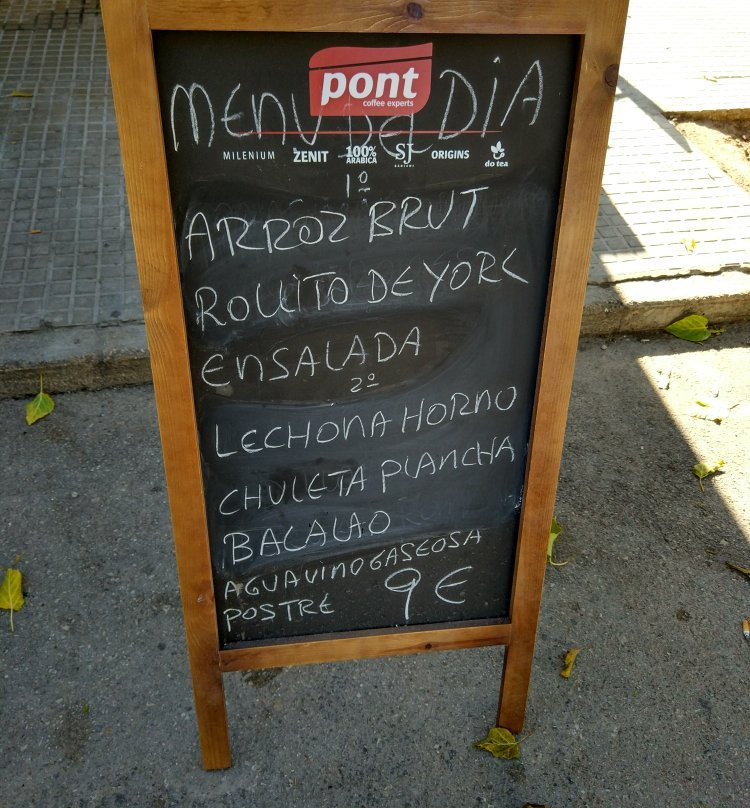 pont
coffee experts
MENU DEL DIA
MILENIUM ZENIT 100% ARABICA SJ ORIGINS do tea
1º
ARROZ BRUT
ROLLITO DE YORK
ENSALADA
2º
LECHONA HORNO
CHULETA PLANCHA
BACALAO
AGUA VINO GASEOSA
POSTRE 9 €